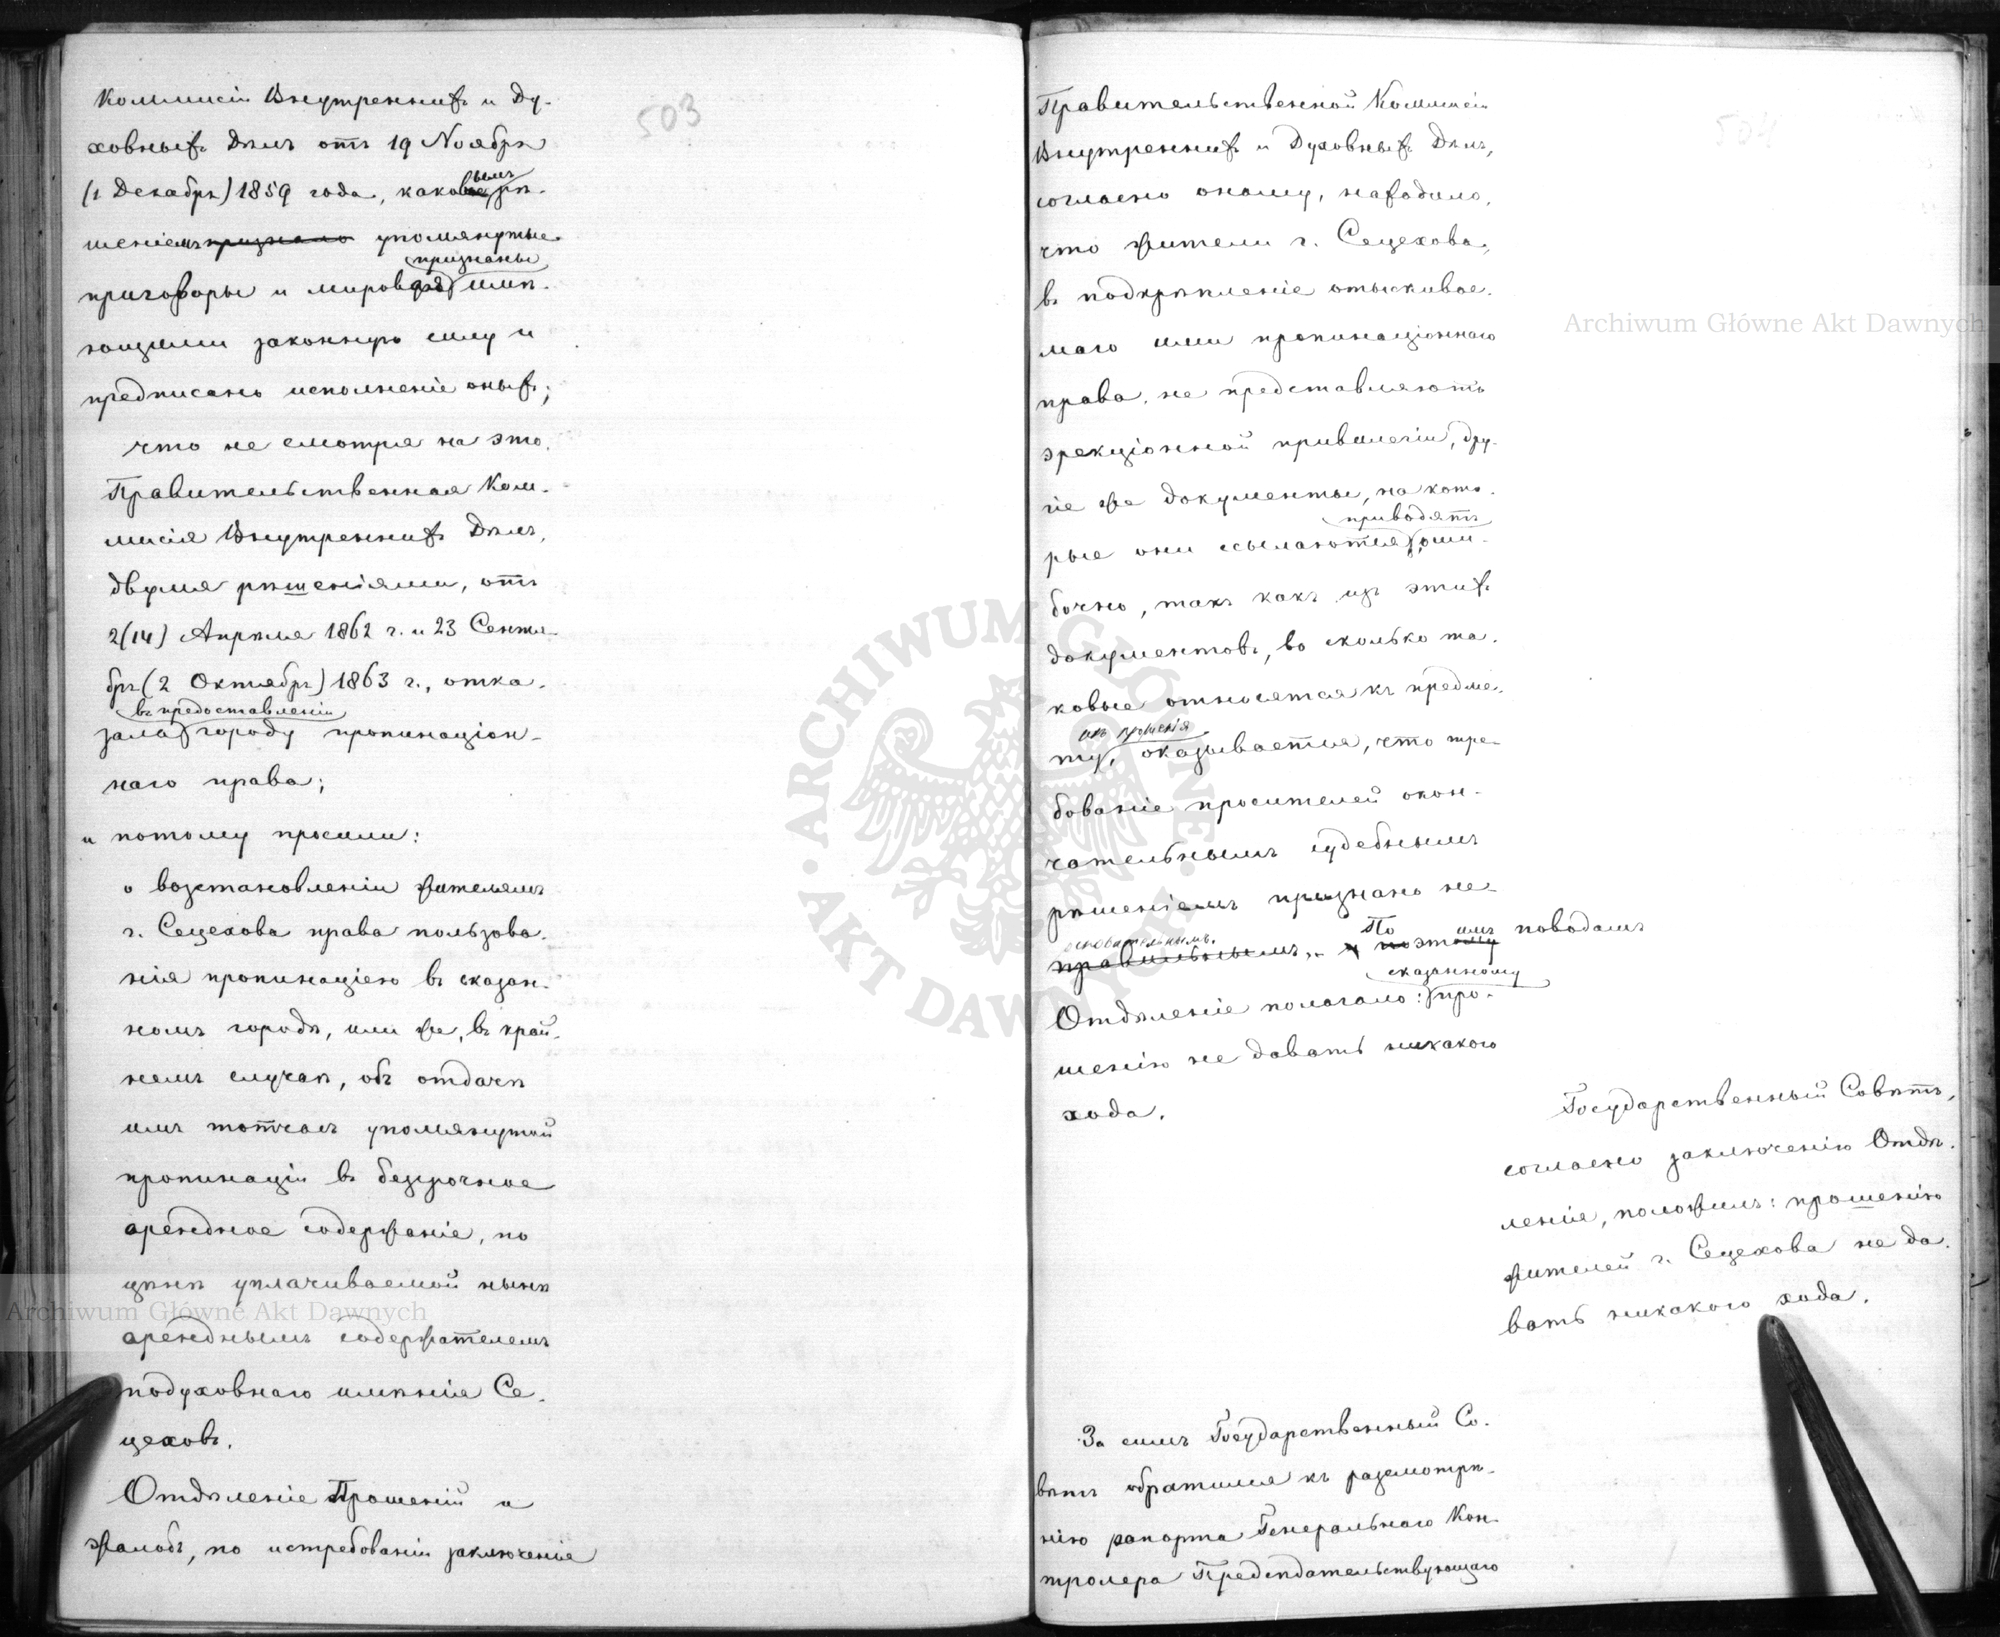 503
Коммисіи Внутреннихъ и Ду-
ховныхъ Дѣлъ отъ 19 Ноября
(1 Декабря) 1859 года, каковымъ рѣ-
шеніемъ признало упомянутые
признаны
приговоры и мировая имѣ-
ющими законную силу и
предписано исполненіе оныхъ;
что не смотря на это,
Правительственная Ком-
мисія Внутреннихъ Дѣлъ,
двумя рѣшеніями, отъ
2(14) Апрѣля 1862 г. и 23 Сентя-
бря (2 Октября) 1863 г., отка-
въ предоставленіи
зала городу пропинаціон-
наго права;
и потому просили:
о возстановленіи жителямъ
г. Сецехова права пользова-
нія пропинаціею въ сказан-
номъ городѣ, или же, въ край-
немъ случаѣ, объ отдачѣ
имъ тотчасъ упомянутой
пропинаціи въ безсрочное
арендное содержаніе, по
цѣнѣ уплачиваемой нынѣ
аренднымъ содержателемъ
подуховнаго имѣнія Се-
цеховъ.
Отдѣленіе Прошеній и
Жалобъ, по истребованіи заключенія
504
Правительственной Коммисіи
Внутреннихъ и Духовныхъ Дѣлъ,
согласно оному, находило,
что жители г. Сецехова,
въ подкрѣпленіе отыскивае-
маго ими пропинаціоннаго
права, не представляютъ
эрекціонной привилегіи, дру-
гіе же документы, на кото-
приводятъ
рые они ссылаются, оши-
бочно, такъ какъ изъ этихъ
документовъ, во сколько та-
ковые относятся къ предме-
ту, оказывается, что тре-
бованіе просителей окон-
чательнымъ судебнымъ
рѣшеніемъ признано не-
основательнымъ. По имъ поводамъ
правильнымъ, и поэтому
сказанному
Отдѣленіе полагало: про-
шенію не давать никакого
хода.
Государственный Совѣтъ,
согласно заключенію Отдѣ-
ленія, положилъ: прошенію
жителей г. Сецехова не да-
вать никакого хода.
За симъ Государственный Со-
вѣтъ обратился къ разсмотрѣ-
нію рапорта Генеральнаго Кон-
тролера Предсѣдательствующаго
Archiwum Główne Akt Dawnych
Archiwum Główne Akt Dawnych
ARCHIWUM GŁÓWNE · AKT DAWNYCH ·